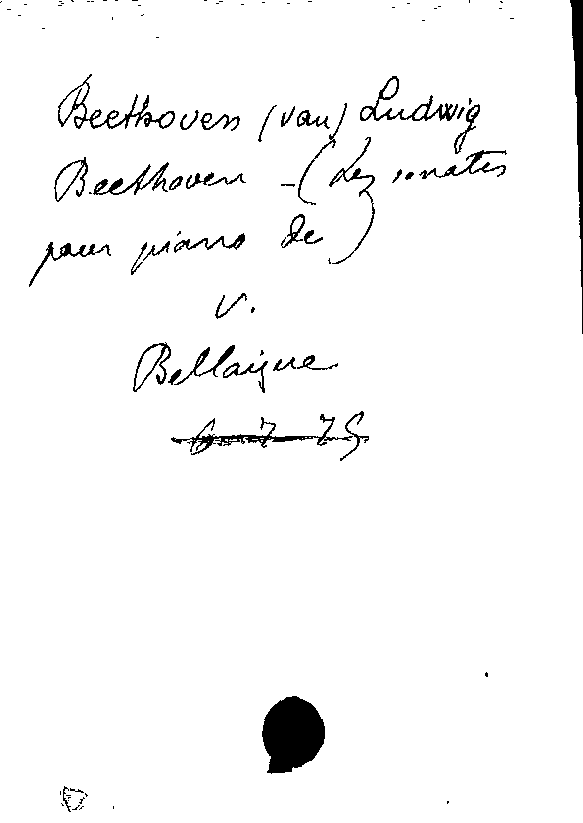 Beethoven (van) Ludwig
Beethoven - (Les sonates
pour piano de)
V.
Bellaigue
6 7 75